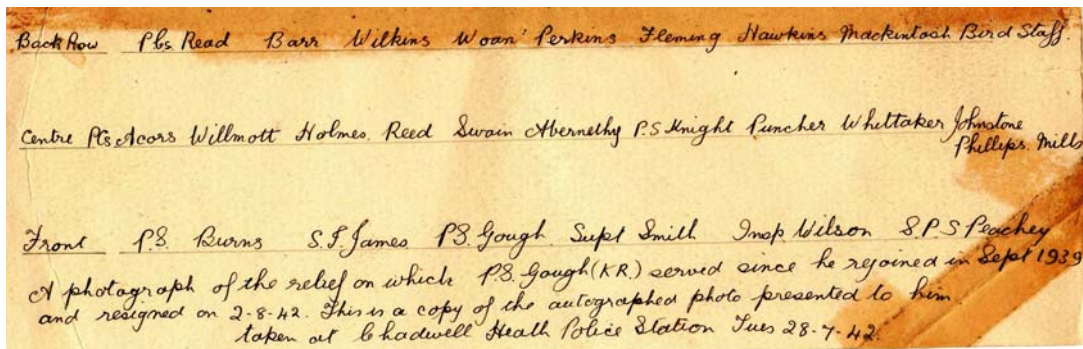 Back Row Pbs. Read Barr Wilkins Woan' Perkins Fleming Hawkins Mackintosh Bird Staff.
Centre Pcs Acors Willmott Holmes. Reed Swain Abernethy P.S Knight Puncher Whittaker Johnstone
Phillips. Mills
Front P.S. Burns S.I. James P.S. Gough. Supt Smith Insp Wilson S.P.S Peachey
A photograph of the relief on which P.S. Gough (K.R.) served since he rejoined in Sept 1939
and resigned on 2-8-42. This is a copy of the autographed photo presented to him.
taken at Chadwell Heath Police Station Tues 28-7-42.